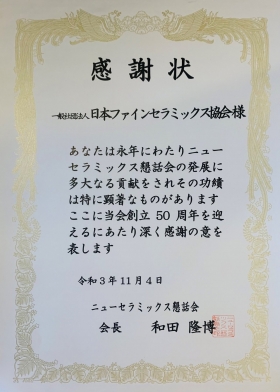 感謝状
一般社団法人 日本ファインセラミックス協会様
あなたは永年にわたりニュー
セラミックス懇話会の発展に
多大なる貢献をされその功績
は特に顕著なものがあります
ここに当会創立 50 周年を迎
えるにあたり深く感謝の意を
表します
令和3年11月4日
ニューセラミックス懇話会
会長 和田 隆博